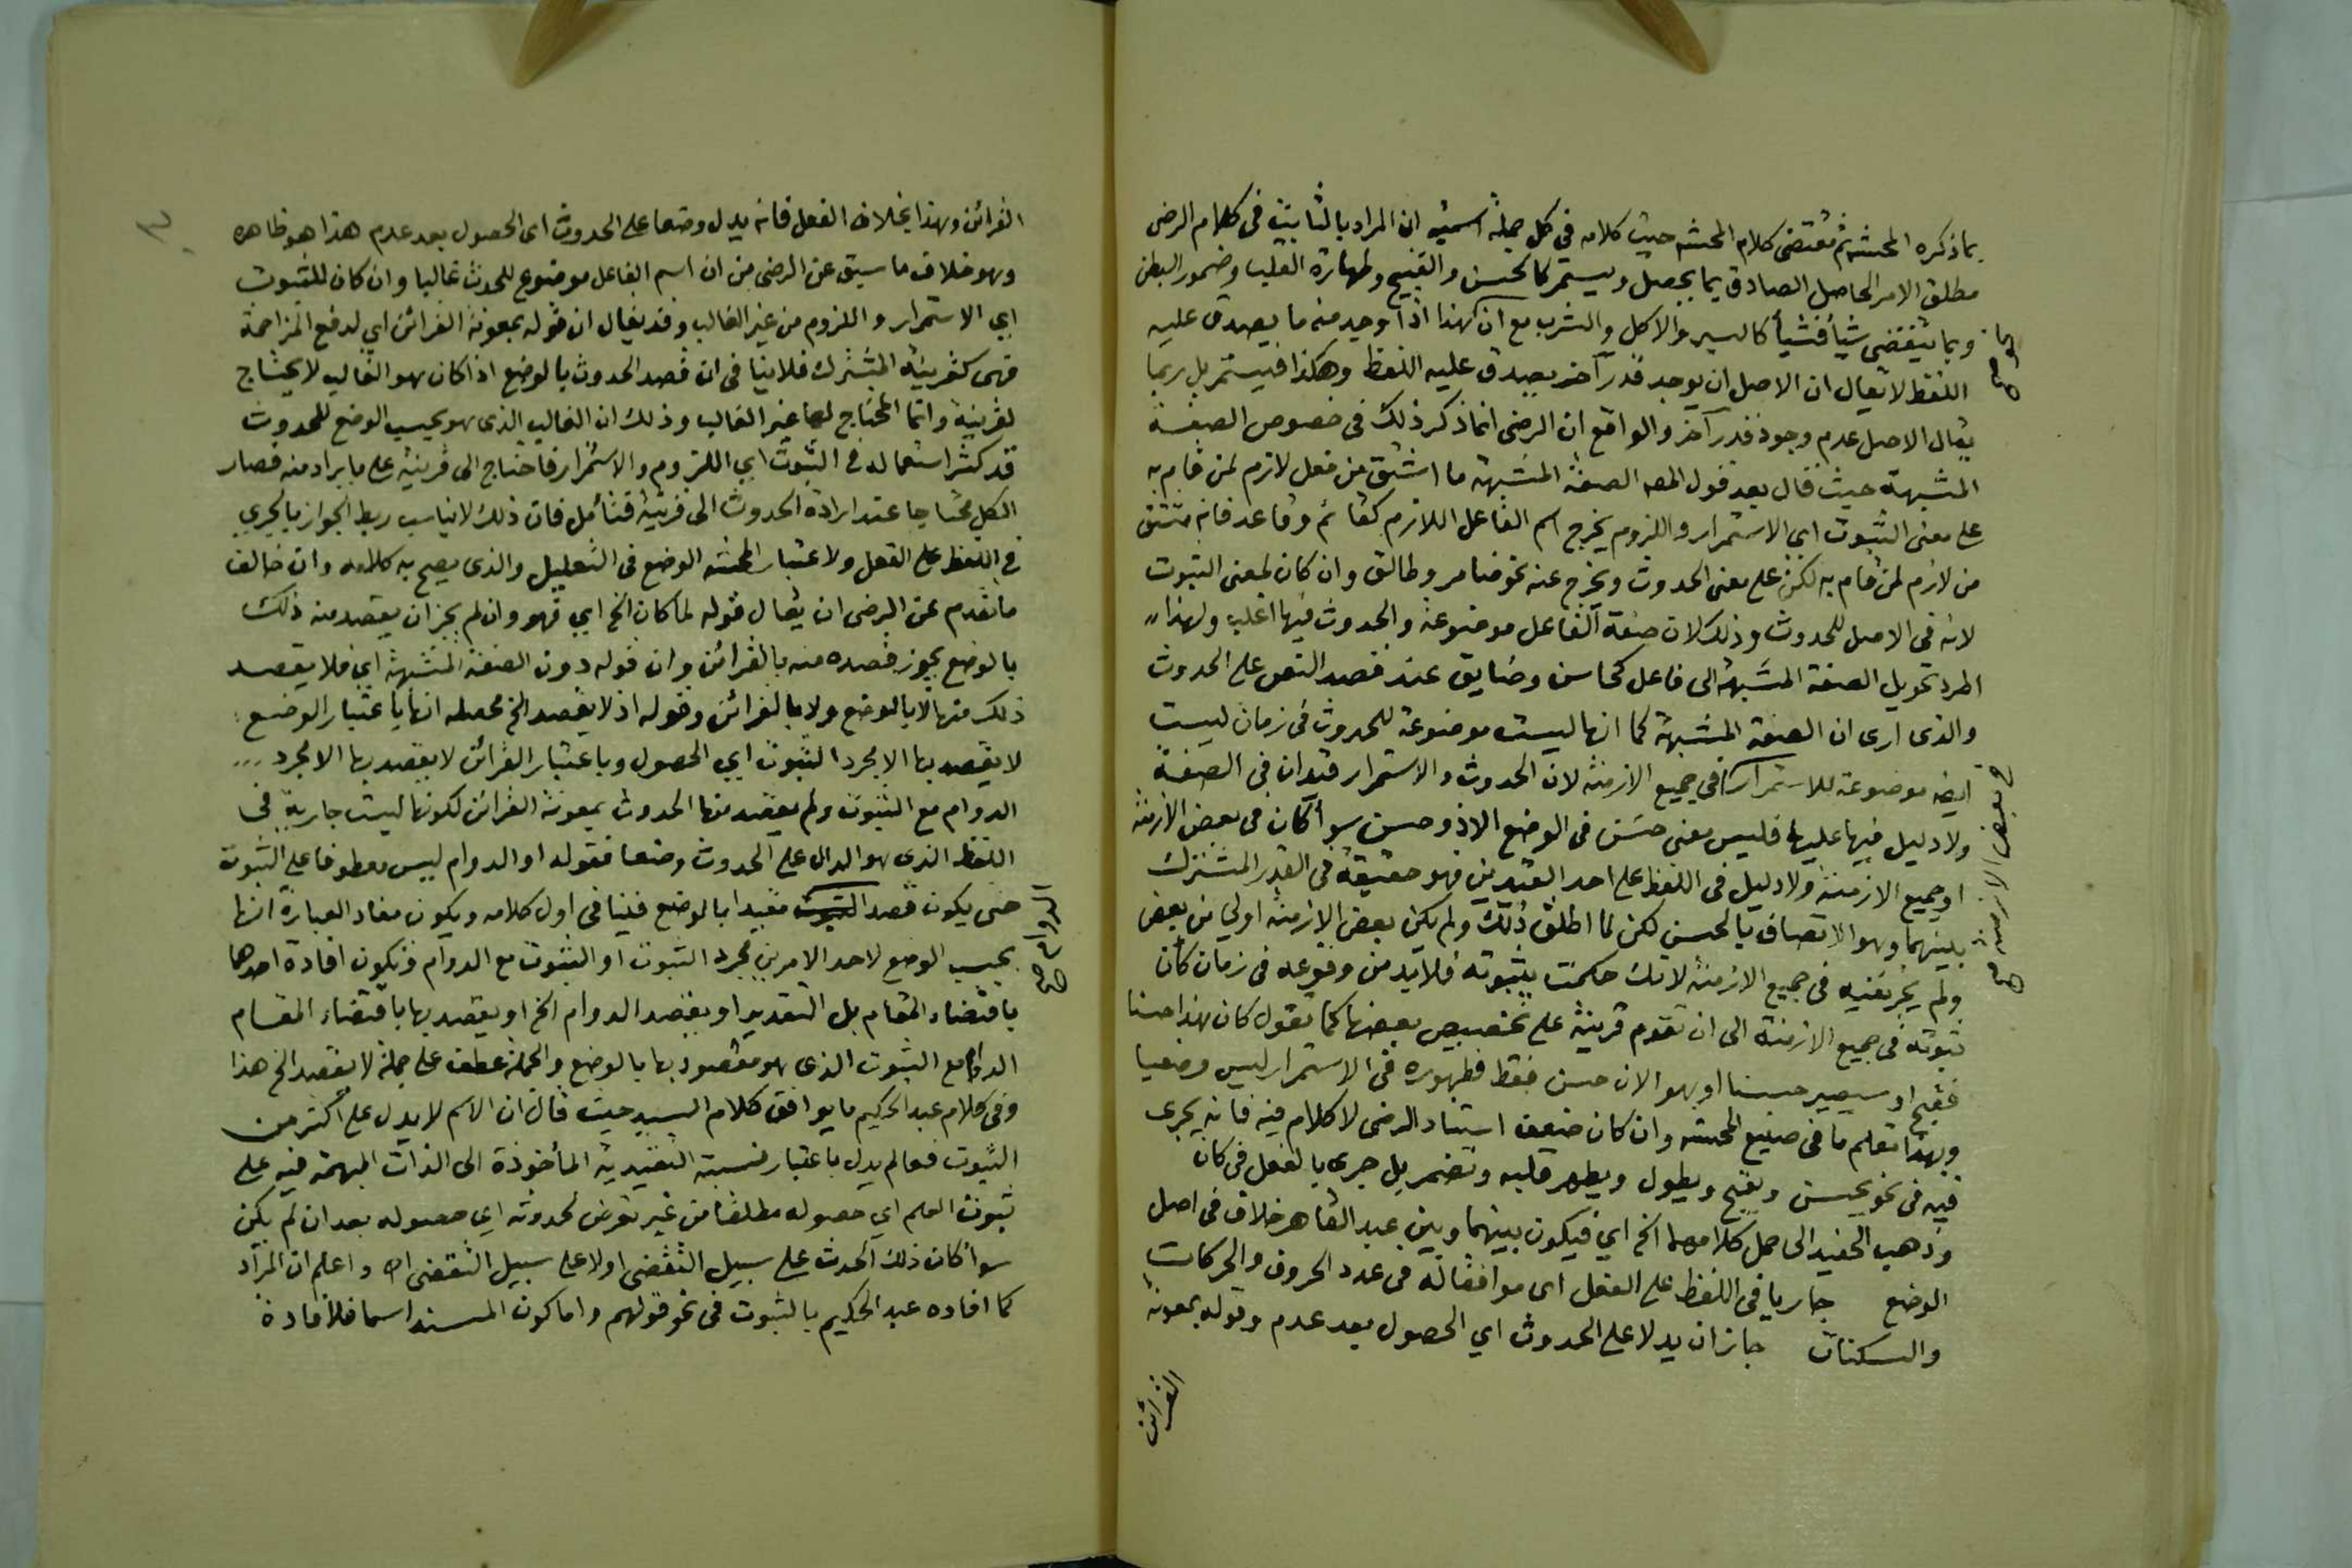 بما ذكره المحشى ثم مقتضى كلام المحشى حيث كلامه فى كل جملة اسميه ان المراد بالثابت فى كلام الرضى
مطلق الامر الحاصل الصادق بما يحصل ويستمر كالحسن والقبيح وطهارة القلب وضمور البطن
وبما ينقضى شيأ فشيأ كالسير والاكل والشرب مع ان هذا اذا وجد منه ما يصدق عليه
اللفظ لا يقال ان الاصل ان يوجد قدر آخر يصدق عليه اللفظ وهكذا فيستمر بل ربما
يقال الاصل عدم وجود قدر آخر والواقع ان الرضى انما ذكر ذلك فى خصوص الصفة
المشبهة حيث قال بعد قول المص الصفة المشبهة ما اشتق من فعل لازم لمن قام به
على معنى الثبوت اى الاستمرار واللزوم يخرج اسم الفاعل اللازم كقائم وقاعد فانه مشتق
من لازم لمن قام به لكن على معنى الحدوث ويخرج عنه نحو ضامر وطالق وان كان لمعنى الثبوت
لانه فى الاصل للحدوث وذلك لان صيغة الفاعل موضوعة والحدوث فيها اغلب ولهذا
اطرد تحويل الصفة المشبهة الى فاعل كحاسن وضايق عند قصد النص على الحدوث
والذى ارى ان الصفة المشبهة كما انها ليست موضوعة للحدوث فى زمان ليست
ايضا موضوعة للاستمرار فى جميع الازمنة لان الحدوث والاستمرار قيدان فى الصفة
ولا دليل فيها عليها فليس معنى حسن فى الوضع الا ذو حسن سوأ كان فى بعض الازمنة
او جميع الازمنة ولا دليل فى اللفظ على احد القيدين فهو حقيقة فى القدر المشترك
بينهما وهو الاتصاف بالحسن لكن لما اطلق ذلك ولم يكن بعض الازمنة اولى من بعض
ولم يجز نفيه فى جميع الازمنة لانك حكمت بثبوته فلابد من وقوعه فى زمان كان
ثبوته فى جميع الازمنة الى ان تقوم قرينة على تخصيص بعضها كما تقول كان هذا حسنا
فقبح او سيصير حسنا او هو الان حسن فقط فظهوره فى الاستمرار ليس وضعيا
وبهذا تعلم ما فى صنيع المحشى وان كان ضعف استناد الرضى لا كلام فيه فانه يجرى
فيه فى نحو يحسن ويقبح ويطول ويطهر قلبه وتضمر بل جرى بالفعل فى كان
وذهب الحفيد الى حمل كلامهما الخ اي فيكون بينهما وبين عبد القاهر خلاف فى اصل
الوضع جاريا فى اللفظ على الفعل اى موافقا له فى عدد الحروف والحركات
والسكنات جاز ان يدلا على الحدوث اي الحصول بعد عدم وقوله بمعونة
القرائن
فى بعض الازمنة صح
القرائن وهذا بخلاف الفعل فانه يدل وضعا على الحدوث اى الحصول بعد عدم هذا هو ظاهره
وهو خلاف ما سبق عن الرضى من ان اسم الفاعل موضوع للحدث غالبا وان كان للثبوت
اي الاستمرار واللزوم من غير الغالب وقد يقال ان قوله بمعونة القرائن اي لدفع المزاحمة
فهى كقرينة المشترك فلا ينافى ان قصد الحدوث بالوضع اذا كان هو الغالب لا يحتاج
لقرينة وانما المحتاج لها غير الغالب وذلك ان الغالب الذى هو بحسب الوضع للحدوث
قد كثر استعماله فى الثبوت اي اللزوم والاستمرار فاحتاج الى قرينة على ما يراد منه فصار
الكل محتاجا عند ارادة الحدوث الى قرينة فتأمل فان ذلك لا يناسب ربط الجواز بالجري
فى اللفظ على الفعل ولا اعتبار المحشى الوضع فى التعليل والذى يصح به كلامه وان خالف
ما تقدم عن الرضى ان يقال قوله لما كان الخ اي فهو وان لم يجز ان يقصد منه ذلك
بالوضع يجوز قصده منه بالقرائن وان قوله دون الصفة المشبهة اي فلا يقصد
ذلك منها لا بالوضع ولا بالقرائن وقوله اذ لا يقصد الخ محصله انها باعتبار الوضع
لا يقصد بها الا مجرد الثبوت اي الحصول وباعتبار القرائن لا يقصد بها الا مجرد
الدوام مع الثبوت ولم يقصد منها الحدوث بمعونة القرائن لكونها ليست جارية فى
اللفظ الذى هو الدال على الحدوث وضعا فقوله او الدوام ليس معطوفا على الثبوت
حتى يكون قصد الثبوت مقيدا بالوضع فينافى اول كلامه ويكون مفاد العبارة انها
بحسب الوضع لاحد الامرين مجرد الثبوت او الثبوت مع الدوام وتكون افادة احدهما
باقتضاء المقام بل التقدير او يقصد الدوام الخ او يقصد بها باقتضاء المقام
الدوام مع الثبوت الذى هو مقصود بها بالوضع والجملة عطف على جملة لا يقصد الخ هذا
وفى كلام عبد الحكيم ما يوافق كلام السيد حيث قال ان الاسم لا يدل على اكثر من
الثبوت فعالم يدل باعتبار نسبته التقييدية المأخوذة الى الذات المبهمة فيه على
ثبوت العلم اي حصوله مطلقا من غير تعرض لحدوثه اي حصوله بعد ان لم يكن
سوأ كان ذلك الحدث على سبيل التقضى او لا على سبيل التقضى اه واعلم ان المراد
كما افاده عبد الحكيم بالثبوت فى نحو قولهم واما كون المسند اسما فلافادة
الدوام صح